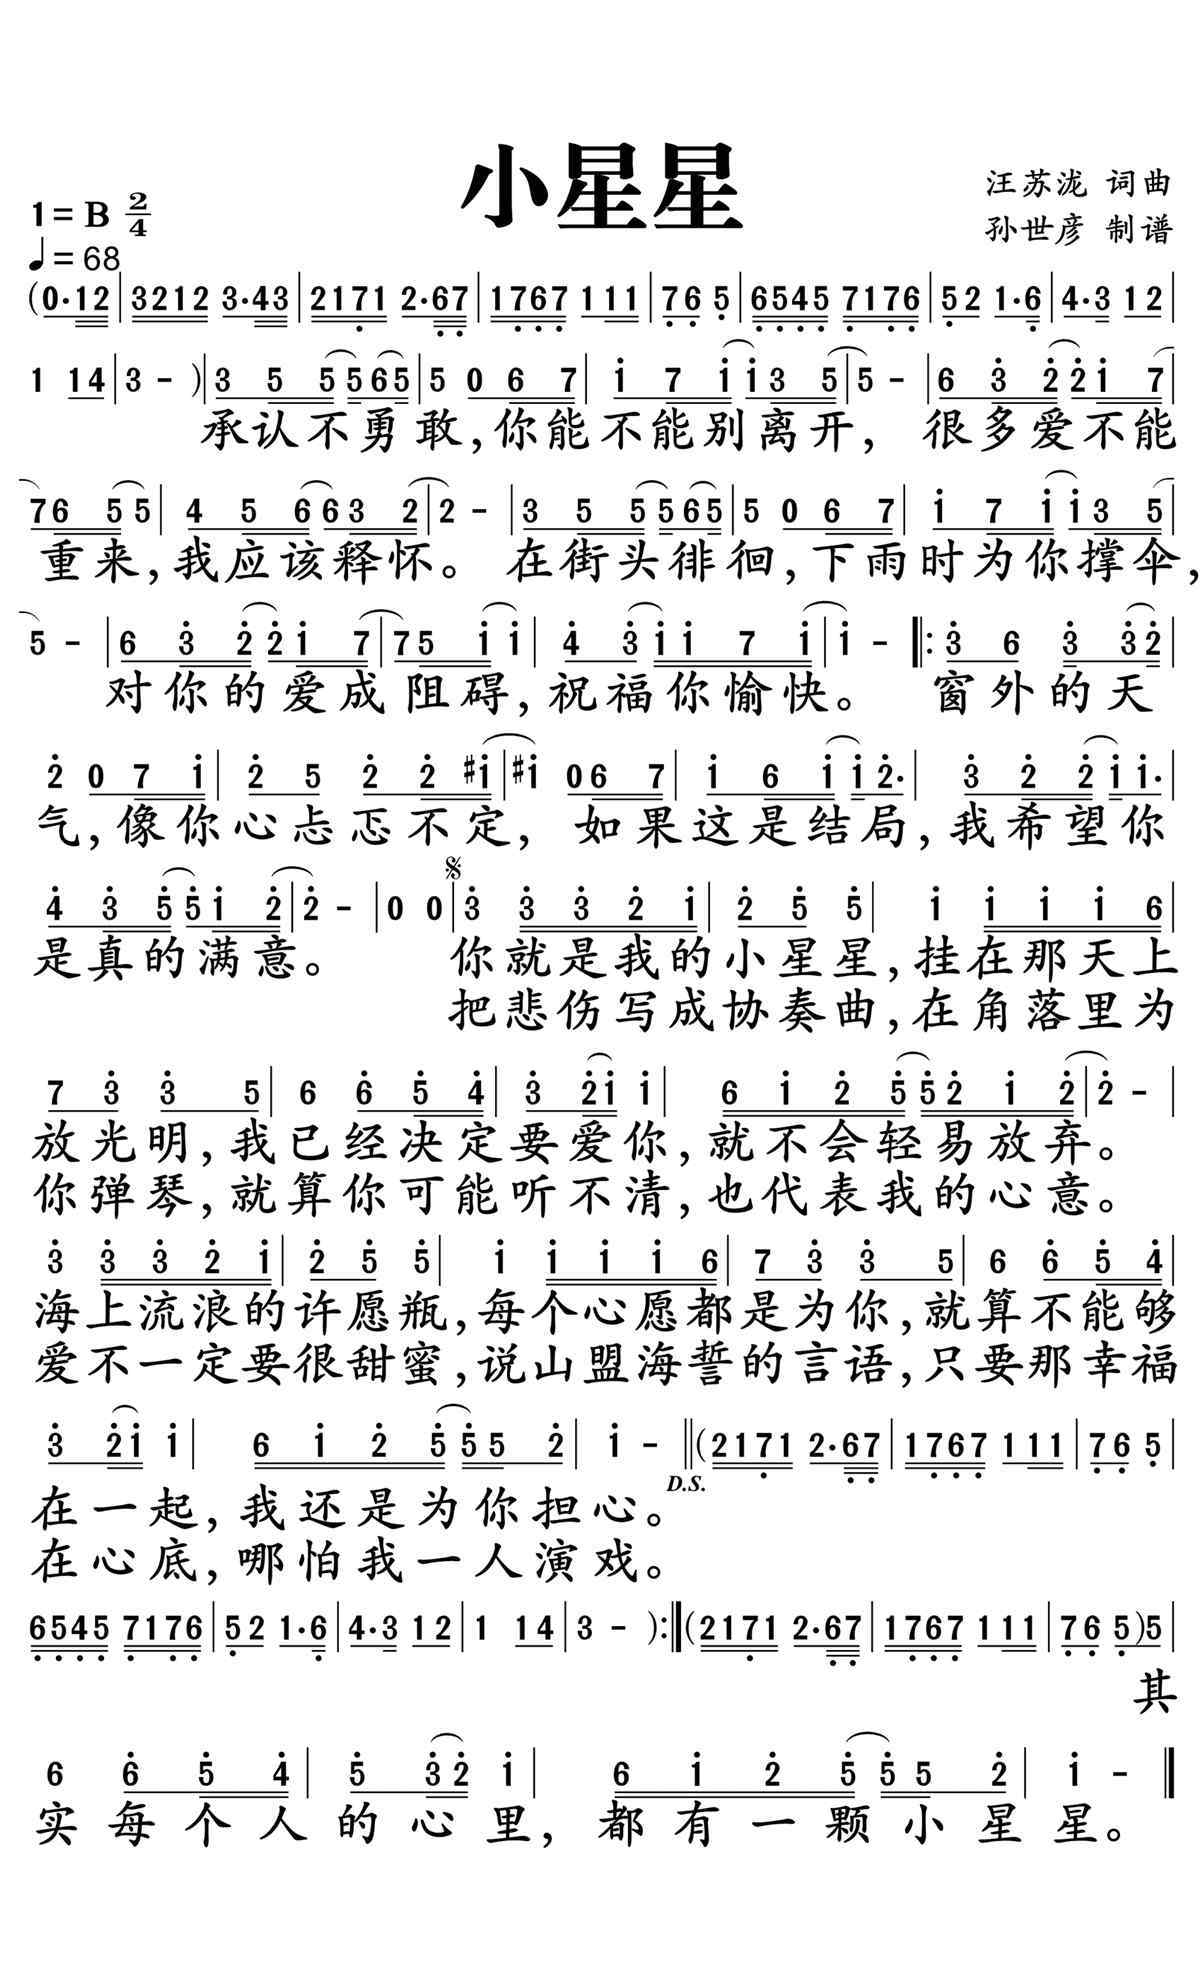 小星星
汪苏泷 词曲
孙世彦 制谱
1=B 2/4
♩=68
(0·12|3212 3·43|2171 2·67|1767 111|76 5|6545 7176|52 1·6|4·3 12|
1 14|3 -)|3 5 5565|5 0 6 7|i 7 ii3 5|5 -|6 3 22i 7|
承认不勇敢,你能不能别离开,很多爱不能
76 55|4 5 663 2|2 -|3 5 5565|5 0 6 7|i 7 ii3 5|
重来,我应该释怀。在街头徘徊,下雨时为你撑伞,
5 -|6 3 22i 7|75 ii|4 3ii 7 i|i -‖:3 6 3 32|
对你的爱成阻碍,祝福你愉快。窗外的天
2 0 7 i|2 5 2 2 #i|#i 06 7|i 6 ii2·|3 2 2i i·|
气,像你心忐忑不定,如果这是结局,我希望你
4 3 55i 2|2 -|0 0|𝄋3 3 3 2 i|2 5 5|i i i i 6|
是真的满意。你就是我的小星星,挂在那天上
把悲伤写成协奏曲,在角落里为
7 3 3 5|6 6 5 4|3 2i i|6 i 2 552 i 2|2 -|
放光明,我已经决定要爱你,就不会轻易放弃。
你弹琴,就算你可能听不清,也代表我的心意。
3 3 3 2 i|2 5 5|i i i i 6|7 3 3 5|6 6 5 4|
海上流浪的许愿瓶,每个心愿都是为你,就算不能够
爱不一定要很甜蜜,说山盟海誓的言语,只要那幸福
3 2i i|6 i 2 555 2|i -‖(2171 2·67|1767 111|76 5|
D.S.
在一起,我还是为你担心。
在心底,哪怕我一人演戏。
6545 7176|52 1·6|4·3 12|1 14|3 -):‖(2171 2·67|1767 111|76 5)5|
其
6 6 5 4|5 32 i|6 i 2 555 2|i -‖
实每个人的心里,都有一颗小星星。